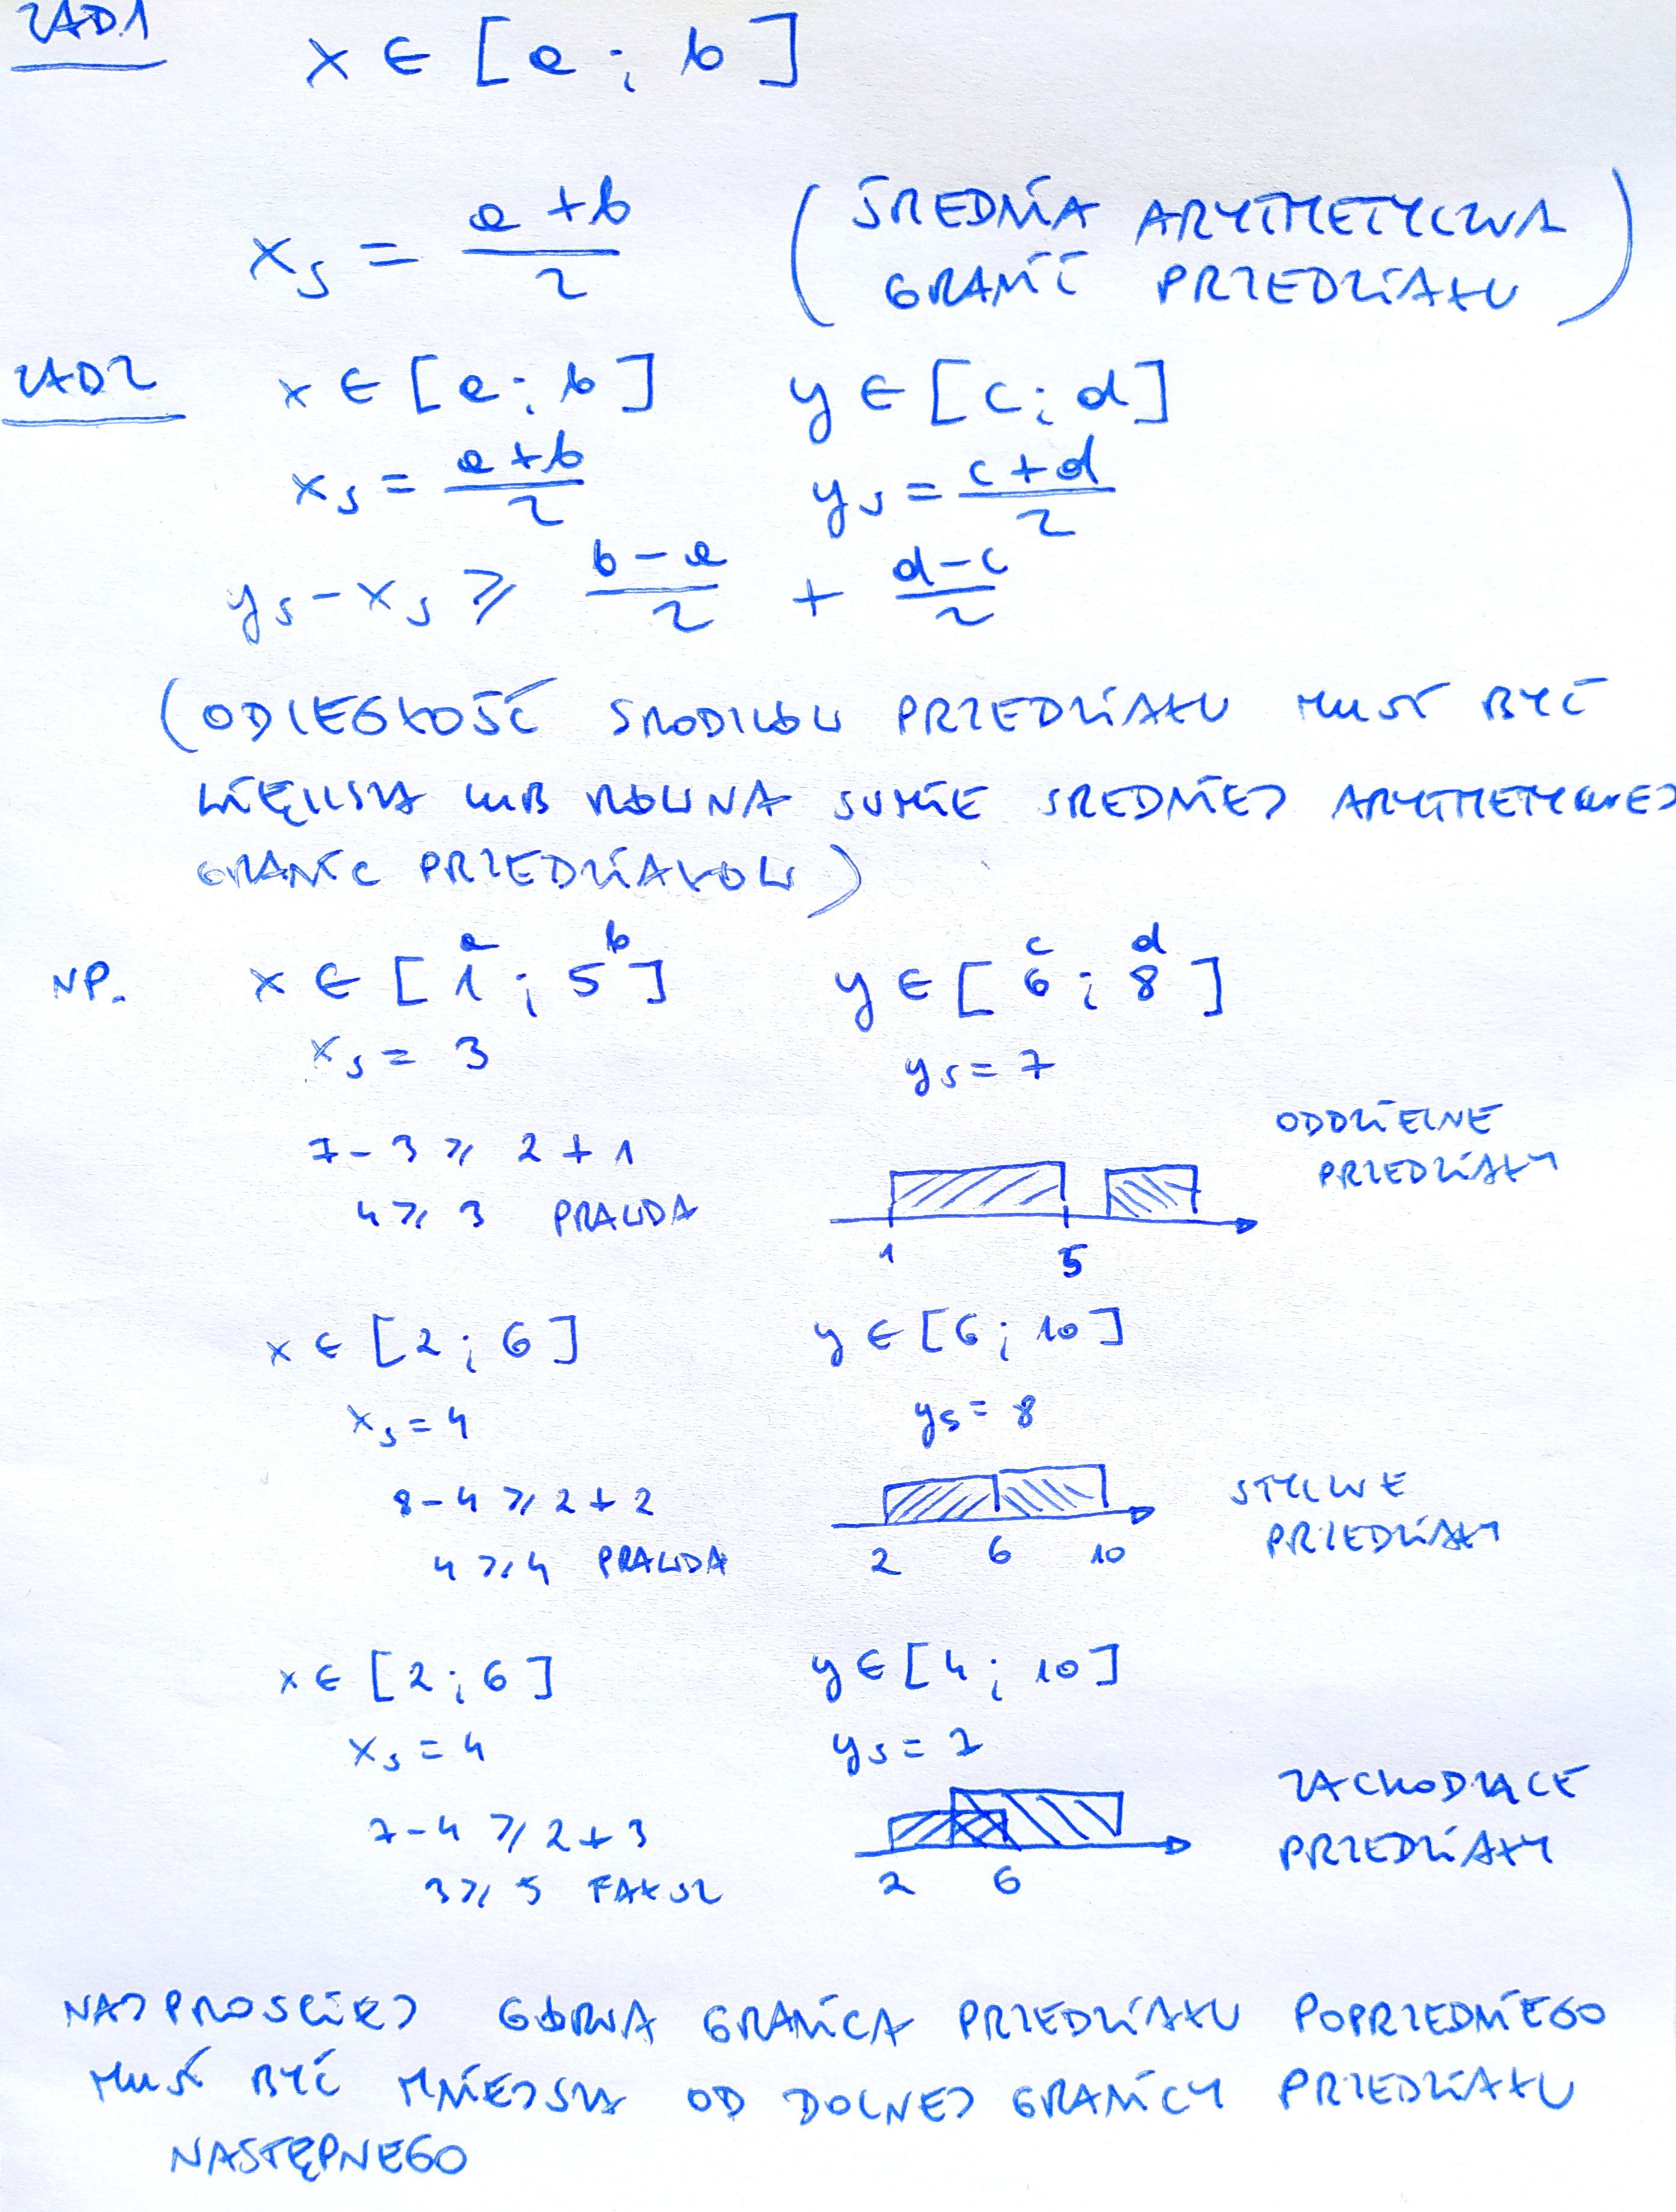 ZAD1
x ∈ [a ; b]
x_s = (a+b)/2 (ŚREDNIA ARYTMETYCZNA
GRANIC PRZEDZIAŁU)
ZAD2 x ∈ [a ; b] y ∈ [c ; d]
x_s = (a+b)/2 y_s = (c+d)/2
y_s - x_s ⩾ (b-a)/2 + (d-c)/2
(ODLEGŁOŚĆ ŚRODKÓW PRZEDZIAŁU MUSI BYĆ
WIĘKSZA LUB RÓWNA SUMIE ŚREDNIEJ ARYTMETYCZNEJ
GRANIC PRZEDZIAŁÓW)
a b c d
NP. x ∈ [1 ; 5] y ∈ [6 ; 8]
x_s = 3 y_s = 7
7 - 3 ⩾ 2 + 1 ODDZIELNE
PRZEDZIAŁY
4 ⩾ 3 PRAWDA
1 5
x ∈ [2 ; 6] y ∈ [6 ; 10]
x_s = 4 y_s = 8
8 - 4 ⩾ 2 + 2 STYCZNE
4 ⩾ 4 PRAWDA 2 6 10 PRZEDZIAŁY
x ∈ [2 ; 6] y ∈ [4 ; 10]
x_s = 4 y_s = 7
7 - 4 ⩾ 2 + 3 ZACHODZĄCE
PRZEDZIAŁY
3 ⩾ 5 FAŁSZ 2 6
NAJPROŚCIEJ GÓRNA GRANICA PRZEDZIAŁU POPRZEDNIEGO
MUSI BYĆ MNIEJSZA OD DOLNEJ GRANICY PRZEDZIAŁU
NASTĘPNEGO